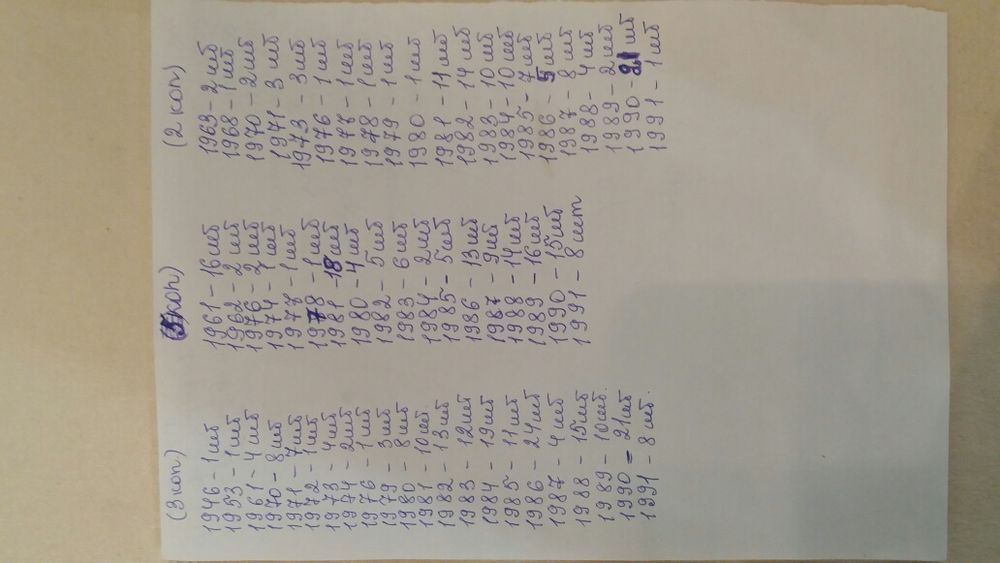 (3 коп)
1946 - 1 шт
1953 - 1 шт
1961 - 4 шт
1970 - 8 шт
1971 - 7 шт
1972 - 1 шт
1973 - 4 шт
1974 - 2 шт
1976 - 1 шт
1979 - 3 шт
1980 - 8 шт
1981 - 10 шт.
1982 - 13 шт
1983 - 12 шт
1984 - 19 шт
1985 - 11 шт
1986 - 24 шт
1987 - 4 шт
1988 - 15 шт
1989 - 10 шт.
1990 = 21 шт
1991 - 8 шт.
(5 коп)
1961 - 16 шт
1962 - 2 шт
1976 - 2 шт
1974 - 1 шт
1977 - 1 шт
1978 - 1 шт
1981 - 18 шт
1980 - 4 шт
1982 - 5 шт
1983 - 6 шт
1984 - 2 шт
1985 - 5 шт
1986 - 13 шт
1987 - 9 шт
1988 - 14 шт
1989 - 16 шт
1990 - 15 шт
1991 - 8 шт
(2 коп)
1963 - 2 шт
1968 - 1 шт
1970 - 2 шт
1971 - 3 шт
1973 - 3 шт
1976 - 1 шт
1977 - 1 шт
1978 - 1 шт
1979 - 1 шт
1980 - 1 шт
1981 - 11 шт
1982 - 14 шт
1983 - 10 шт
1984 - 10 шт
1985 - 7 шт
1986 - 5 шт
1987 - 8 шт
1988 - 4 шт
1989 - 2 шт
1990 - 21 шт
1991 - 1 шт